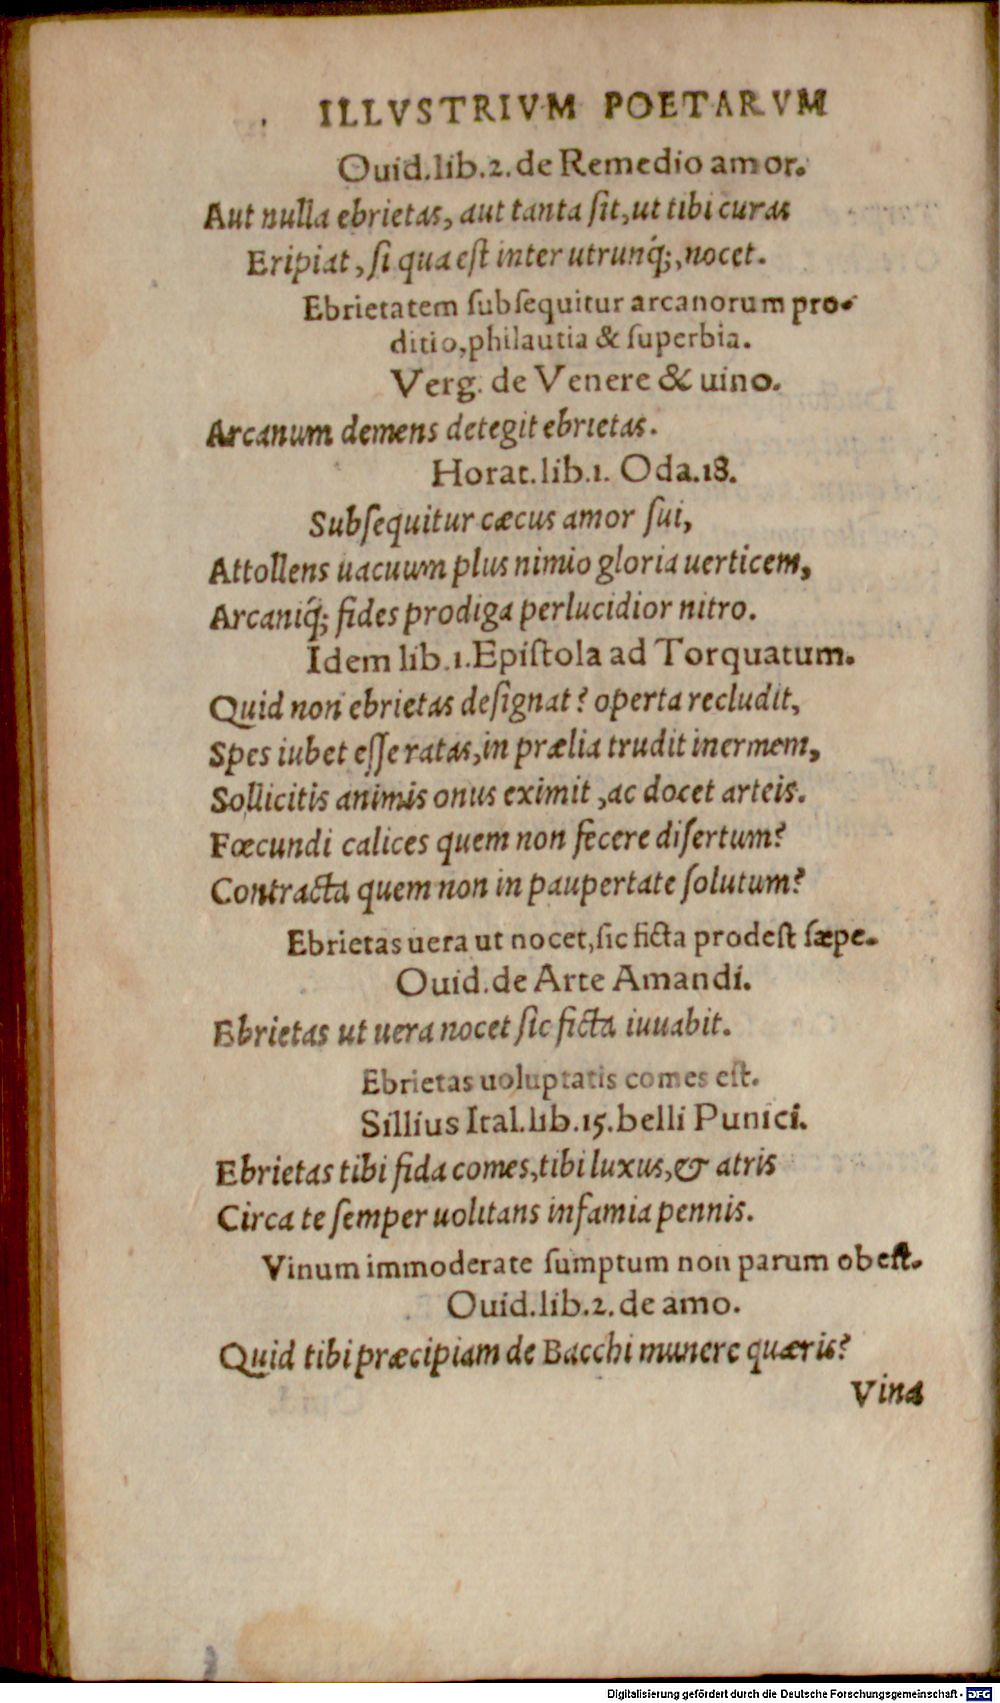 ILLVSTRIVM POETARVM
Ouid.lib.2.de Remedio amor.
Aut nulla ebrietas, aut tanta ſit, ut tibi curas
Eripiat, ſi qua eſt inter utrunq́;, nocet.
Ebrietatem ſubſequitur arcanorum pro-
ditio, philautia & ſuperbia.
Verg. de Venere & uino.
Arcanum demens detegit ebrietas.
Horat.lib.1. Oda.18.
Subſequitur cæcus amor ſui,
Attollens uacuum plus nimio gloria uerticem,
Arcaniq́; fides prodiga perlucidior nitro.
Idem lib.1.Epiſtola ad Torquatum.
Quid non ebrietas deſignat? operta recludit,
Spes iubet eſſe ratas, in prælia trudit inermem,
Sollicitis animis onus eximit, ac docet arteis.
Fœcundi calices quem non fecere diſertum?
Contracta quem non in paupertate ſolutum?
Ebrietas uera ut nocet, ſic ficta prodeſt ſæpe.
Ouid.de Arte Amandi.
Ebrietas ut uera nocet ſic ficta iuuabit.
Ebrietas uoluptatis comes eſt.
Sillius Ital.lib.15.belli Punici.
Ebrietas tibi fida comes, tibi luxus, & atris
Circa te ſemper uolitans infamia pennis.
Vinum immoderate ſumptum non parum obeſt.
Ouid.lib.2.de amo.
Quid tibi præcipiam de Bacchi munere quæris?
Vina
Digitalisierung gefördert durch die Deutsche Forschungsgemeinschaft - DFG